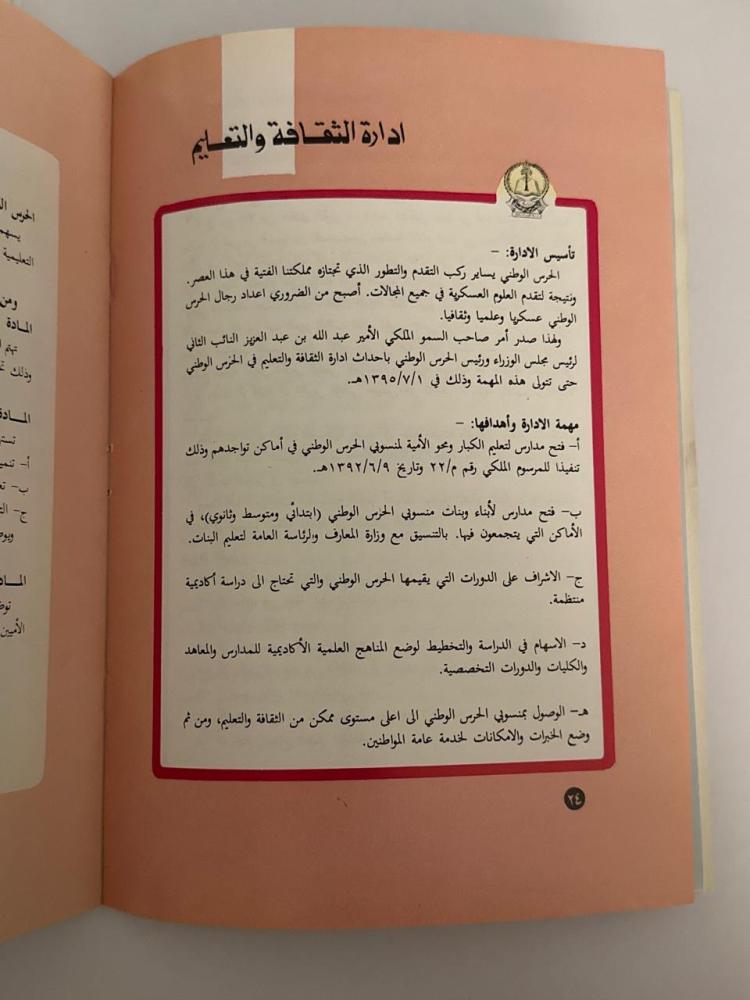 ادارة الثقافة والتعليم
تأسيس الادارة: –
الحرس الوطني يساير ركب التقدم والتطور الذي تجتازه مملكتنا الفتية في هذا العصر.
ونتيجة لتقدم العلوم العسكرية في جميع المجالات. أصبح من الضروري اعداد رجال الحرس
الوطني عسكريا وعلميا وثقافيا.
ولهذا صدر أمر صاحب السمو الملكي الأمير عبد الله بن عبد العزيز النائب الثاني
لرئيس مجلس الوزراء ورئيس الحرس الوطني باحداث ادارة الثقافة والتعليم في الحرس الوطني
حتى تتولى هذه المهمة وذلك في ١٣٩٥/٧/١هـ.
مهمة الادارة وأهدافها: –
أ– فتح مدارس لتعليم الكبار ومحو الأمية لمنسوبي الحرس الوطني في أماكن تواجدهم وذلك
تنفيذا للمرسوم الملكي رقم م/٢٢ وتاريخ ١٣٩٢/٦/٩هـ.
ب– فتح مدارس لأبناء وبنات منسوبي الحرس الوطني (ابتدائي ومتوسط وثانوي)، في
الأماكن التي يتجمعون فيها. بالتنسيق مع وزارة المعارف والرئاسة العامة لتعليم البنات.
ج– الاشراف على الدورات التي يقيمها الحرس الوطني والتي تحتاج الى دراسة أكاديمية
منتظمة.
د– الاسهام في الدراسة والتخطيط لوضع المناهج العلمية الأكاديمية للمدارس والمعاهد
والكليات والدورات التخصصية.
هـ– الوصول بمنسوبي الحرس الوطني الى اعلى مستوى ممكن من الثقافة والتعليم، ومن ثم
وضع الخبرات والامكانات لخدمة عامة المواطنين.
٢٤
الحرس
يسهم
التعليمية
ومن
المادة
تهتم
وذلك
المادة
أ– تنمية
ب–
ج–
الأميين